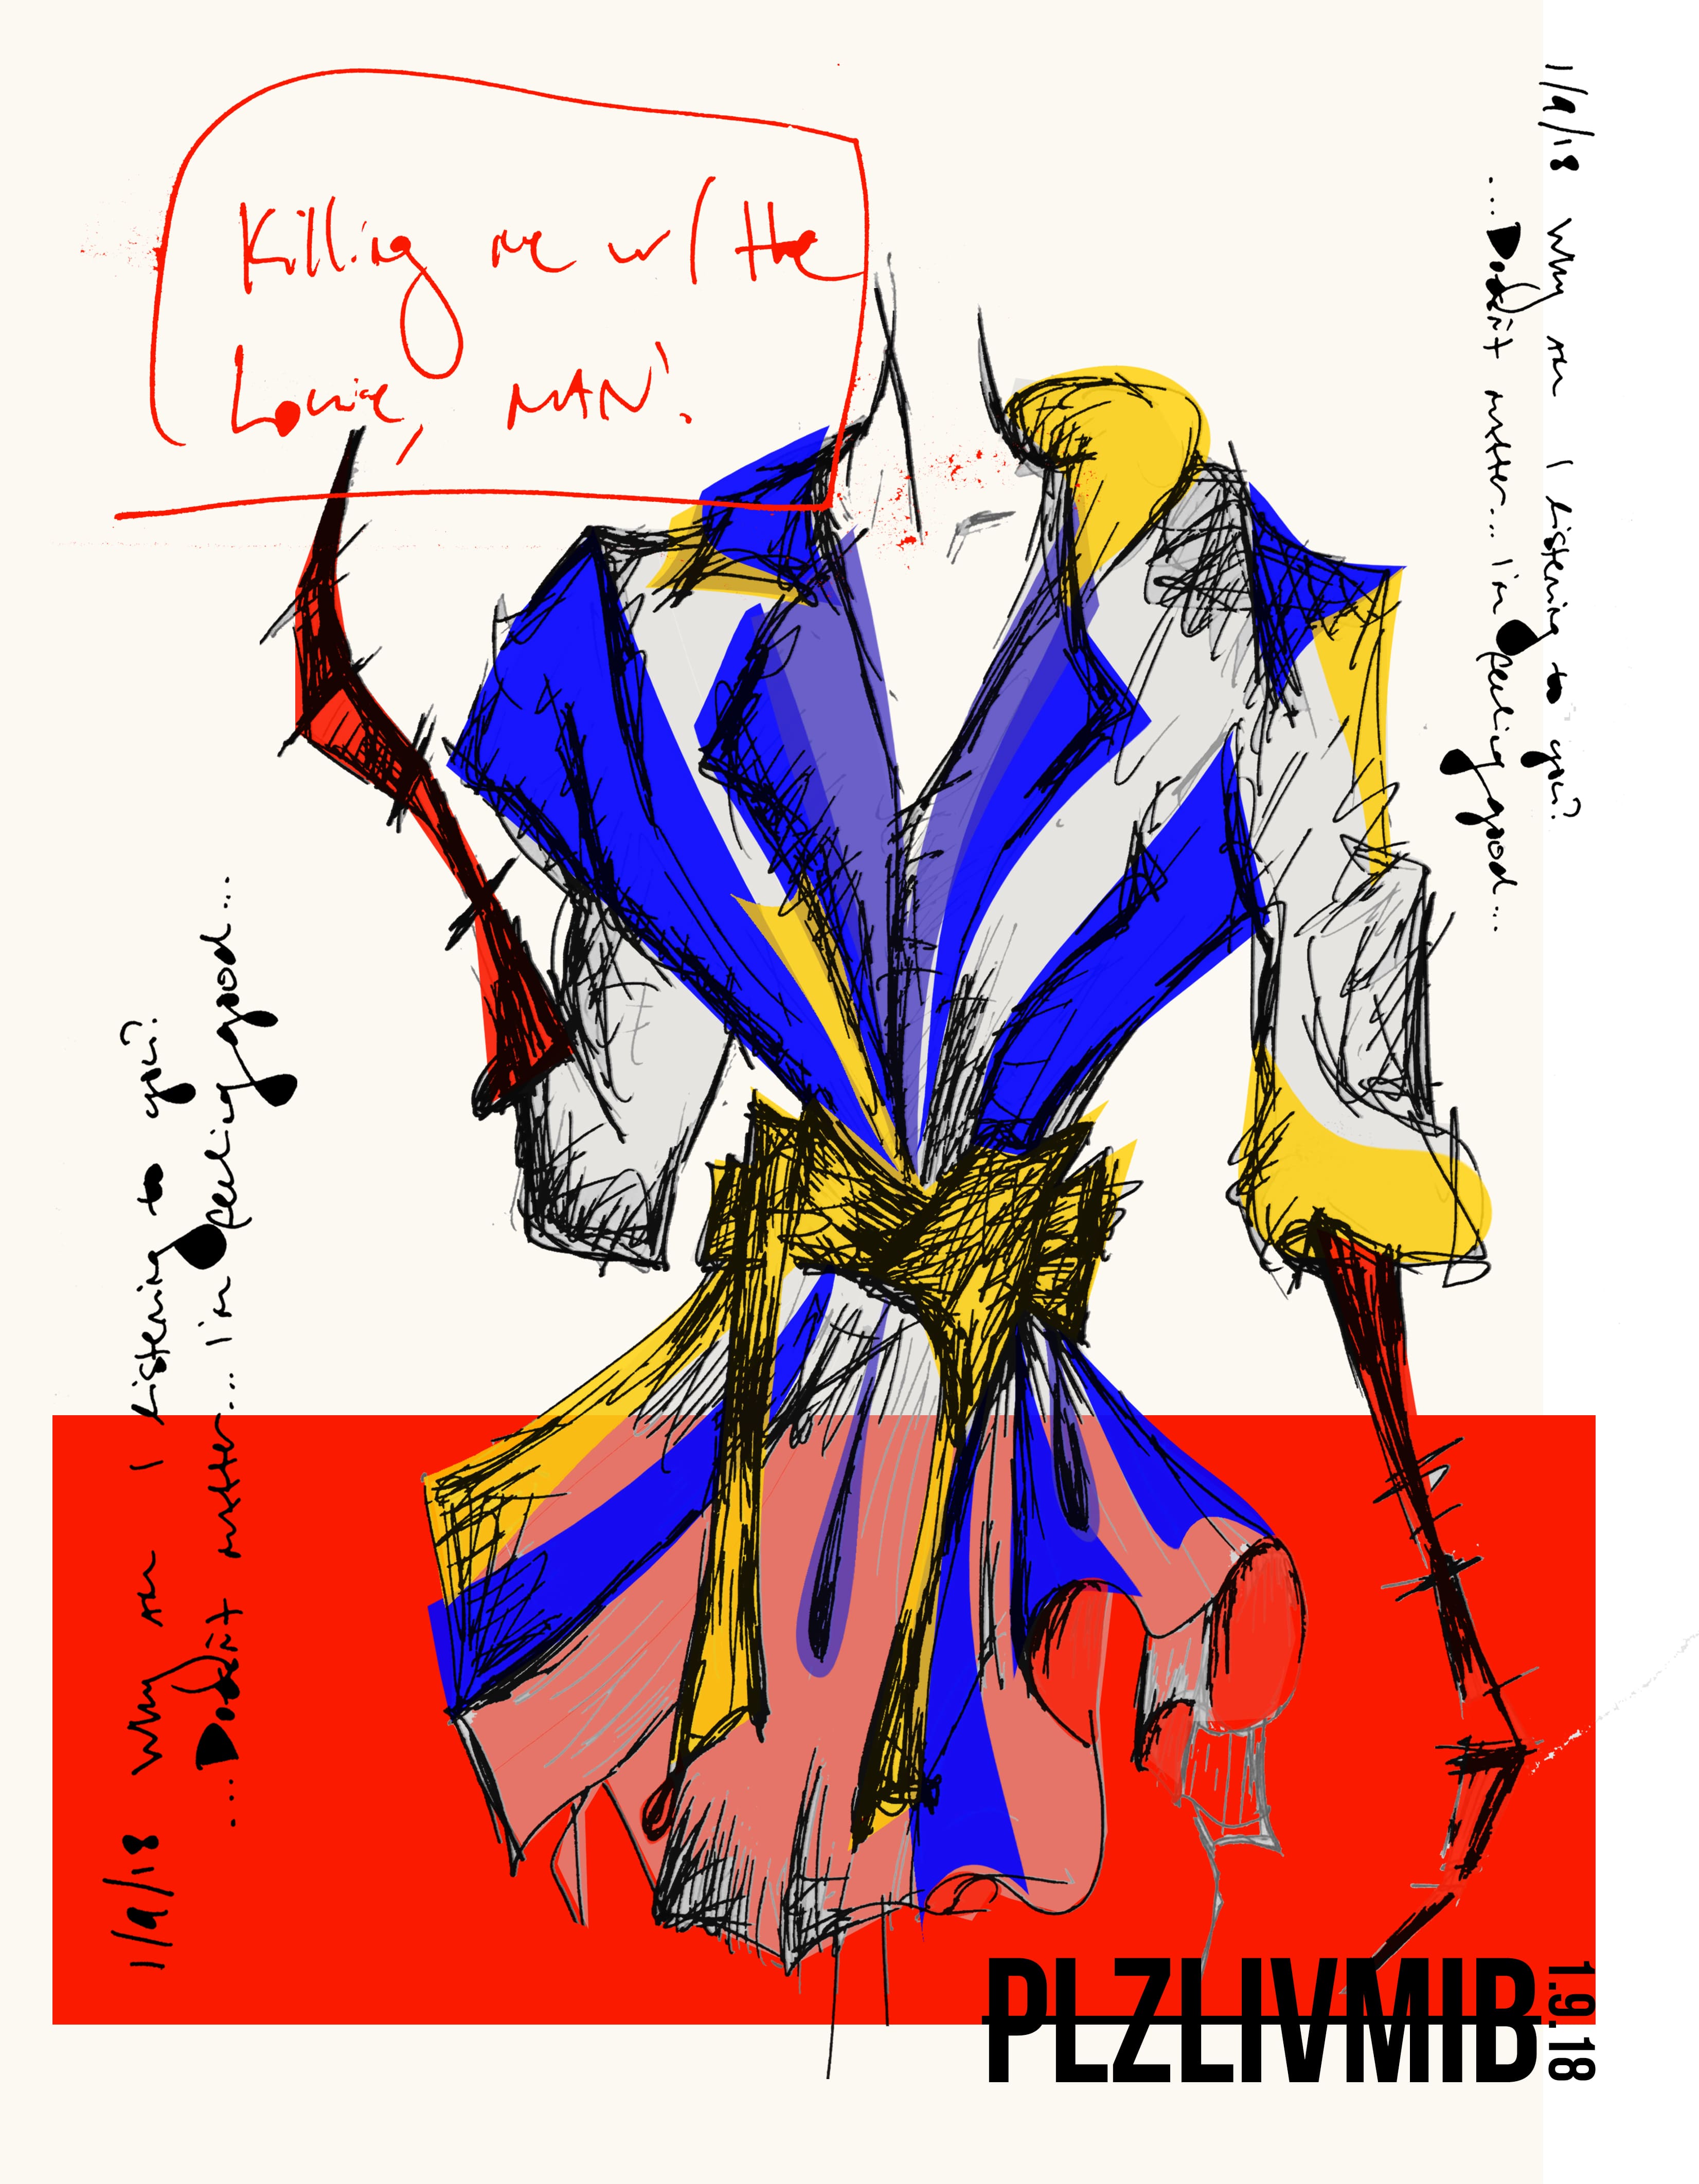 Killing me w/ the
Louie, MAN!
1/9/18 Why am I listening to you?
...Doesn't matter... I'm feeling good...
1/9/18 Why am I listening to you?
...Doesn't matter... I'm feeling good...
PLZLIVMIB
1.9.18